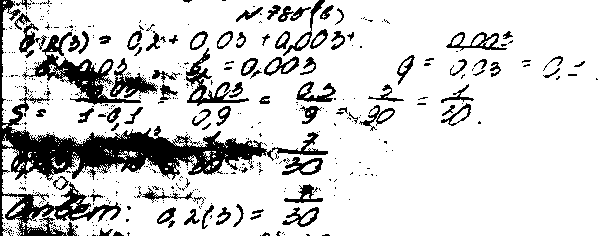 N 785(в)
0,2(3) = 0,2 + 0,03 + 0,003 + .
0,03 b₂ = 0,003 q = 0,003/0,03 = 0,1.
S = 0,03/1-0,1 = 0,03/0,9 = 0,3/9 = 3/90 = 1/30.
7/30
Ответ: 0,2(3) = 7/30